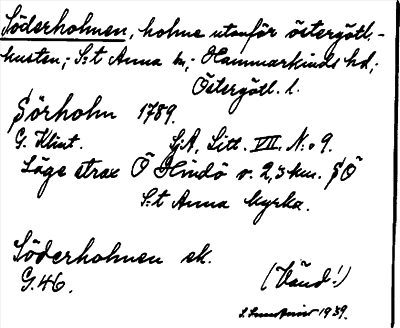 Söderholmen, holme utanför östergötl.-
kusten; S:t Anna sn; Hammarkinds hd;
Östergötl. l.
Sörholm 1789.
G. Klint. SjA, Litt. VII. N:o 9.
Läge strax Ö Hindö o. 2,3 km. SÖ
S:t Anna kyrka.
Söderholmen ek.
G. 46. (Vänd!)
1939.